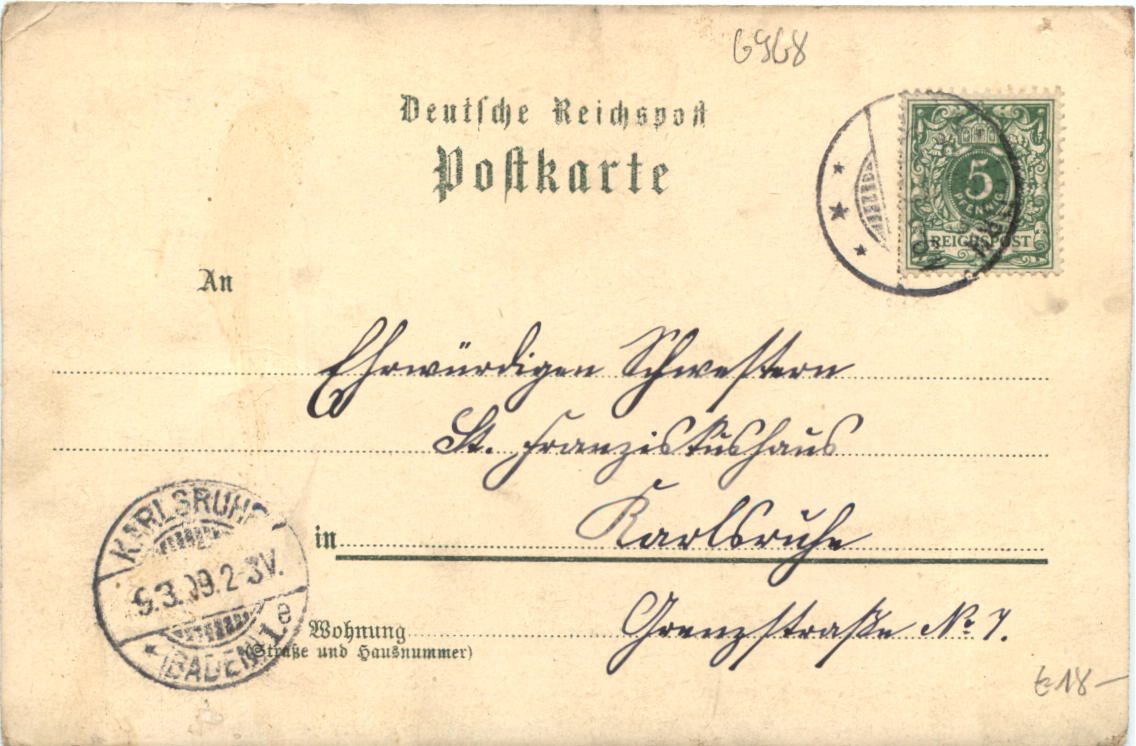 6968
Deutsche Reichspost
Postkarte
5
PFENNIG
REICHSPOST
An
Ehrwürdigen Schwestern
St. Franziskushaus
in Karlsruhe
KARLSRUHE
9.3.99.2-3V.
(BADEN) 1.a
Wohnung Grenzstraße No 7.
(Straße und Hausnummer)
€18-